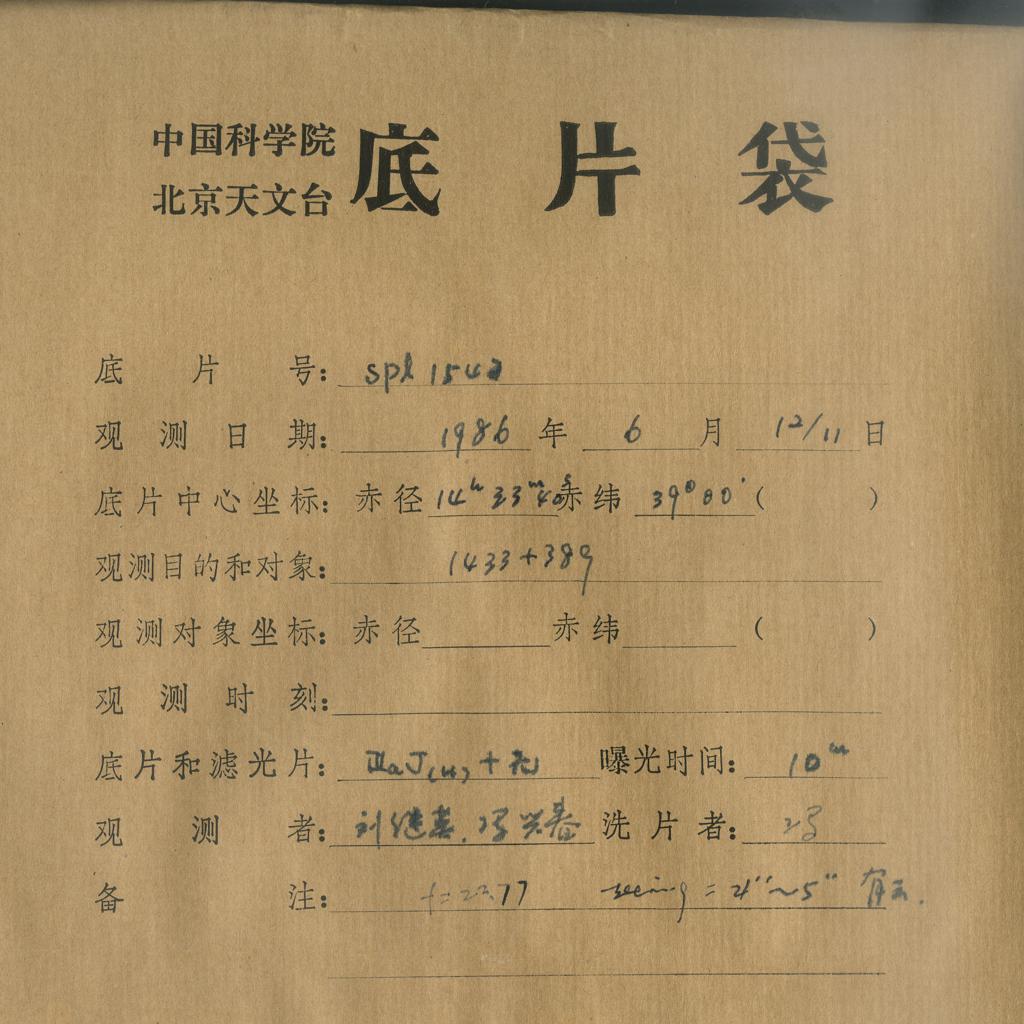 中国科学院
北京天文台 底片袋
底片号: spl 1542
观测日期: 1986 年 6 月 12/11 日
底片中心坐标: 赤径 14h 33m 40s 赤纬 39°00′ ( )
观测目的和对象: 1433+389
观测对象坐标: 赤径 赤纬 ( )
观测时刻:
底片和滤光片: IIaJ(H) + 无 曝光时间: 10m
观测者: 刘继英. 冯兴春 洗片者: 冯
备注: f=22.77 seeing = 4″~5″ 有云.